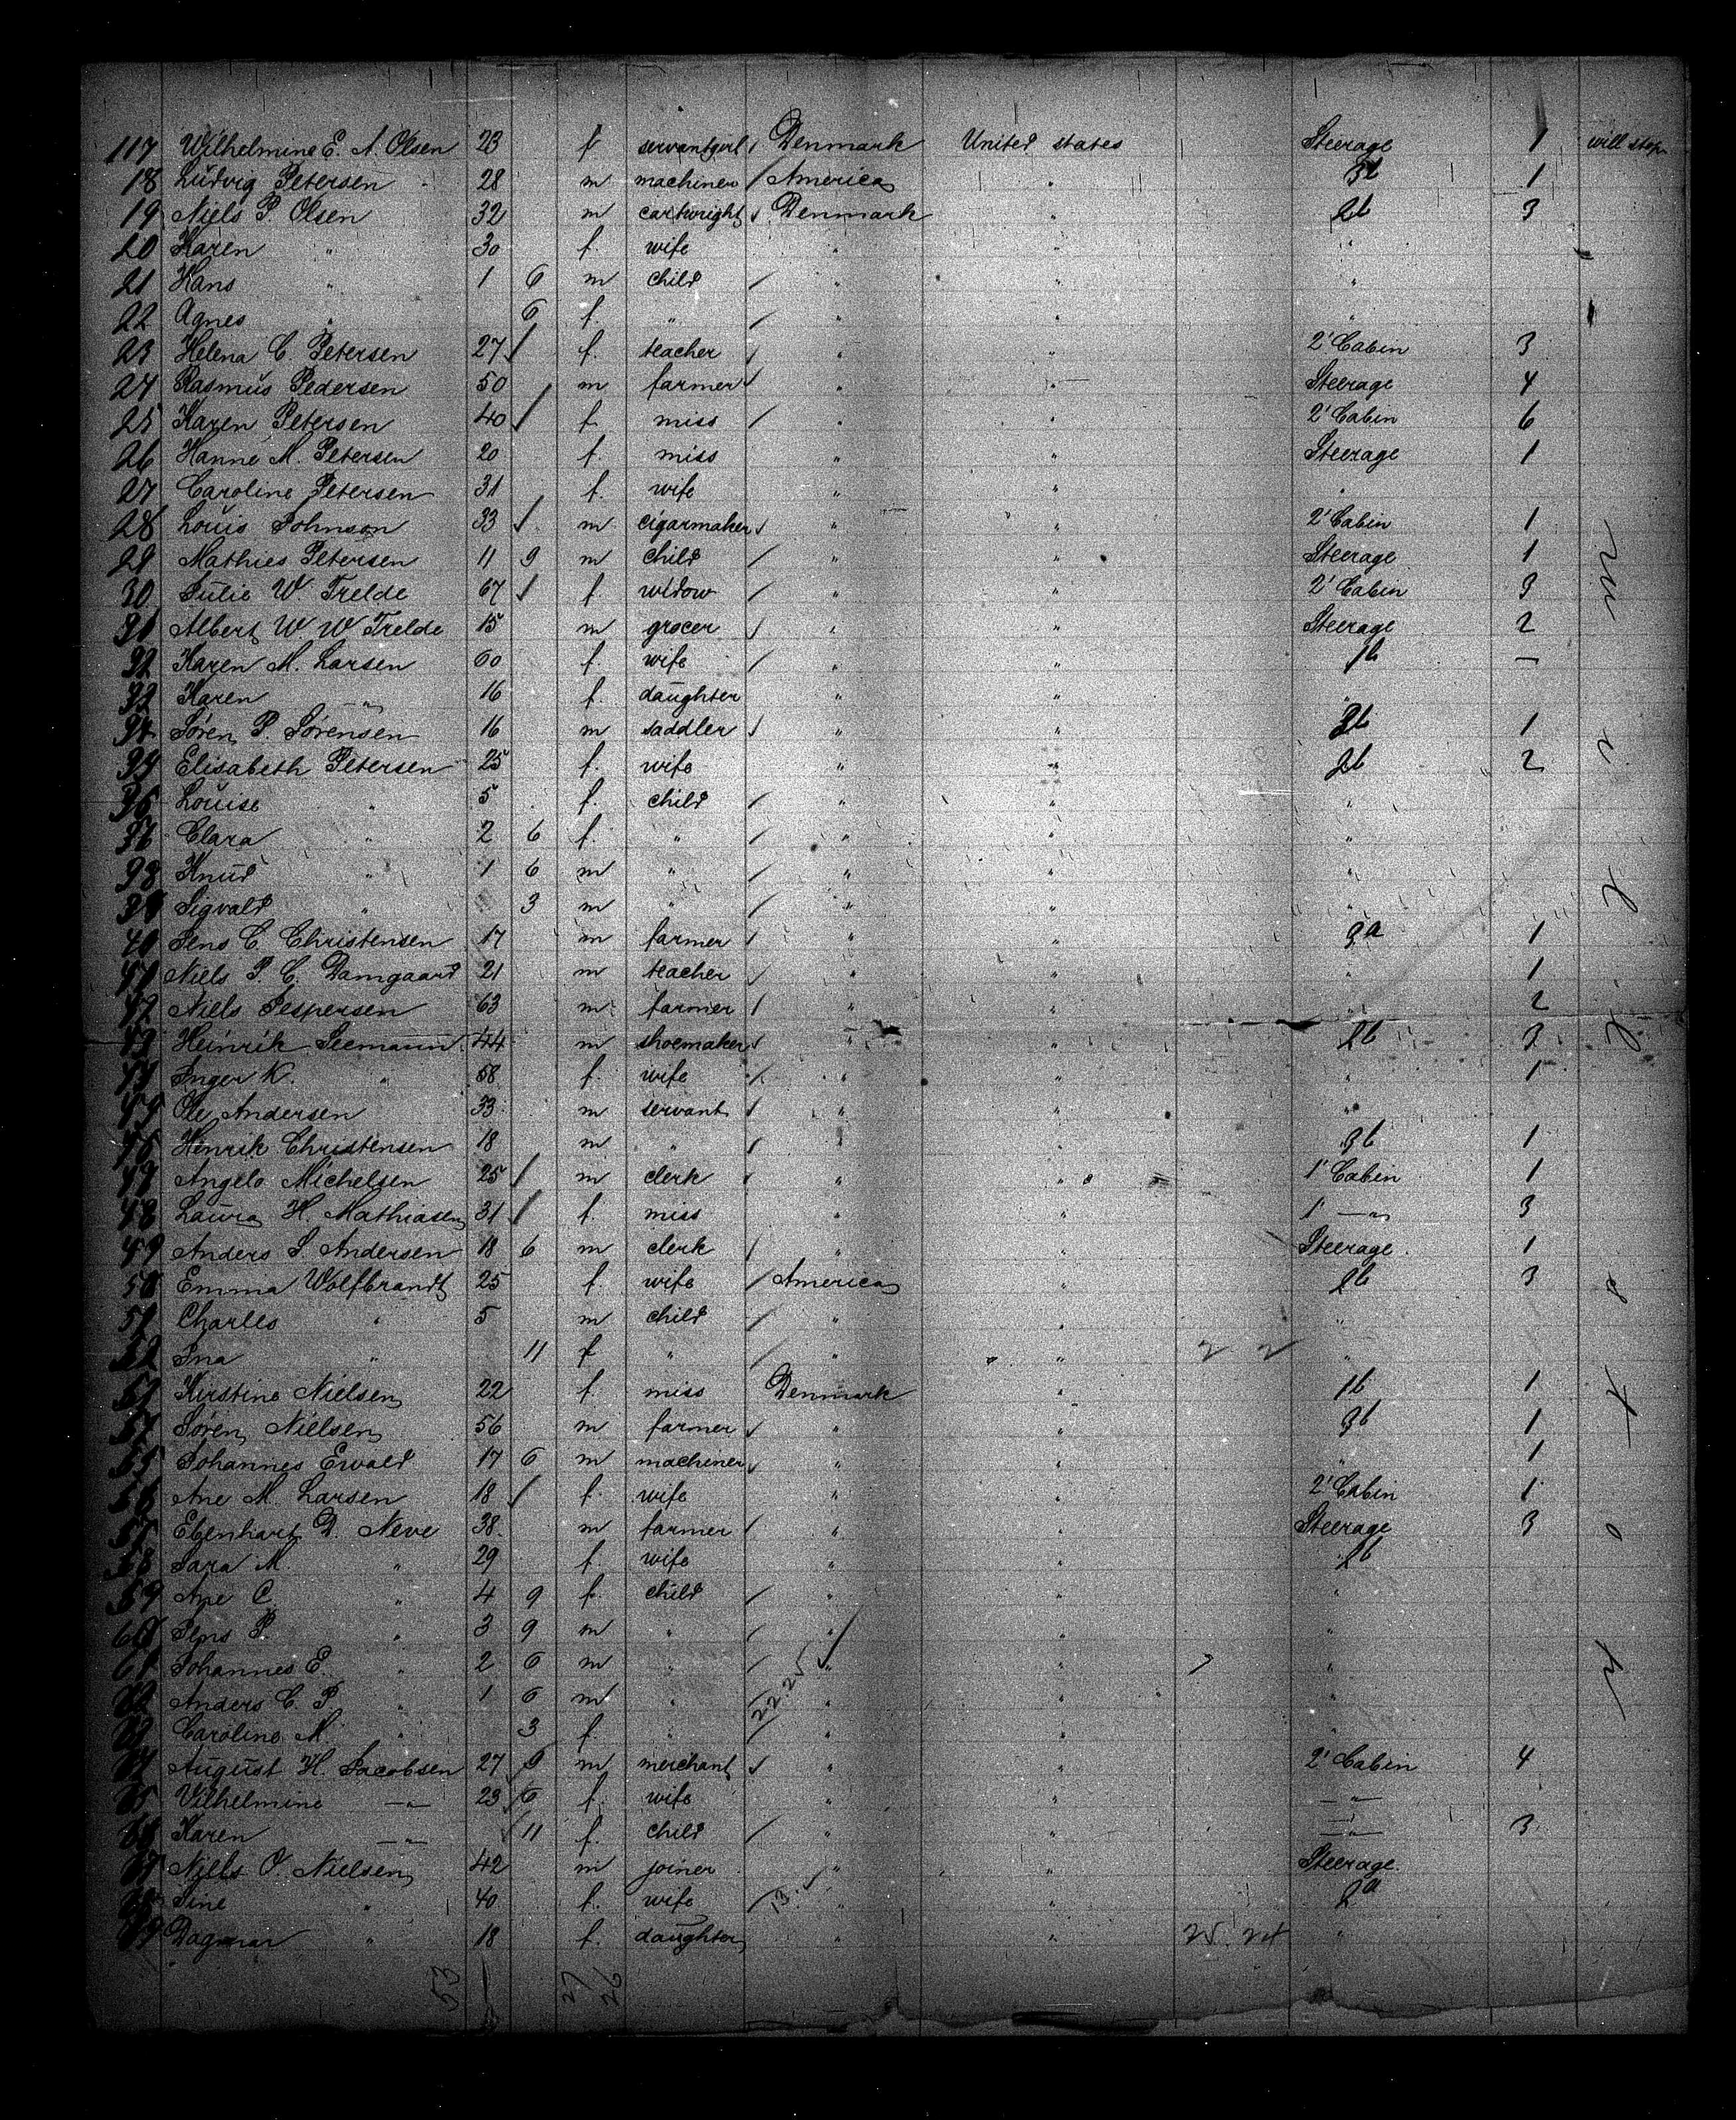 117 Wilhelmine E. A. Olsen 23 f servantgirl Denmark United states Steerage 1 will stop
18 Ludvig Petersen 28 m machiner America " 3b 1
19 Niels P. Olsen 32 m cartwright Denmark " 2b 3
20 Karen " 30 f. wife " " "
21 Hans " 1 6 m child " " "
22 Agnes " 6 f. " " " "
23 Helena C. Petersen 27 f. teacher " " 2' Cabin 3
24 Rasmus Pedersen 50 m farmer " " Steerage 4
25 Karen Petersen 40 f. miss " " 2' Cabin 6
26 Hanne M. Petersen 20 f. miss " " Steerage 1
27 Caroline Petersen 31 f. wife " " "
28 Louis Johnson 33 m cigarmaker " " 2' Cabin 1
29 Mathies Petersen 11 9 m child " " Steerage 1
30 Julie W Trelde 67 f. widow " " 2' Cabin 3
31 Albert W. W Trelde 15 m grocer " " Steerage 2
32 Karen M. Larsen 60 f. wife " " 1b –
33 Karen " 16 f. daughter " " "
34 Søren P. Sørensen 16 m saddler " " 3b 1
Elisabeth Petersen 25 f. wife " " 2b 2
Louise " 5 f. child " " "
Clara " 2 6 f. " " " "
Knud " 1 6 m " " " "
Sigvald " 3 m " " " "
40 Jens C. Christensen 17 m farmer " " 3a 1
41 Niels P. C. Damgaard 21 m teacher " " " 1
42 Niels Jespersen 63 m farmer " " " 2
43 Heinrik Seemann 44 m shoemaker " " 2b 3
Inger K. " 58 f. wife " " " 1
Ole Andersen 33 m servant " " "
Henrik Christensen 18 m " " " 3b 1
Angelo Michelsen 25 m clerk " " 1' Cabin 1
48 Laura H. Mathiasen 31 f. miss " " 1' –"– 3
49 Anders S. Andersen 18 6 m clerk " " Steerage 1
50 Emma Wolfbrandt 25 f. wife America " 2b 3
51 Charles " 5 m child " " "
52 Ina " 11 f " " " 2 2 "
Kirstine Nielsen 22 f. miss Denmark " 1b 1
Søren Nielsen 56 m farmer " " 3b 1
Johannes Ewald 17 6 m machiner " " " 1
Ane M. Larsen 18 f. wife " " 2' Cabin 1
Ebenhart D. Neve 38 m farmer " " Steerage 3
58 Sara M. " 29 f. wife " " 2b
59 Ane C. " 4 9 f. child " " "
60 Jens P. " 3 9 m " " " "
61 Johannes E. " 2 6 m " " " "
Anders C. P. " 1 6 m " 22.25 " " "
Caroline M. " 3 f. " " " "
August H. Jacobsen 27 9 m merchant " " 2' Cabin 4
Vilhelmine –"– 23 6 f. wife " " –"–
Karen –"– 11 f. child " " –"– 3
Niels O. Nielsen 42 m joiner " " Steerage
Sine " 40 f. wife 13 " " 2a
Dagmar " 18 f. daughter " " 25. 24 "
53 27 26